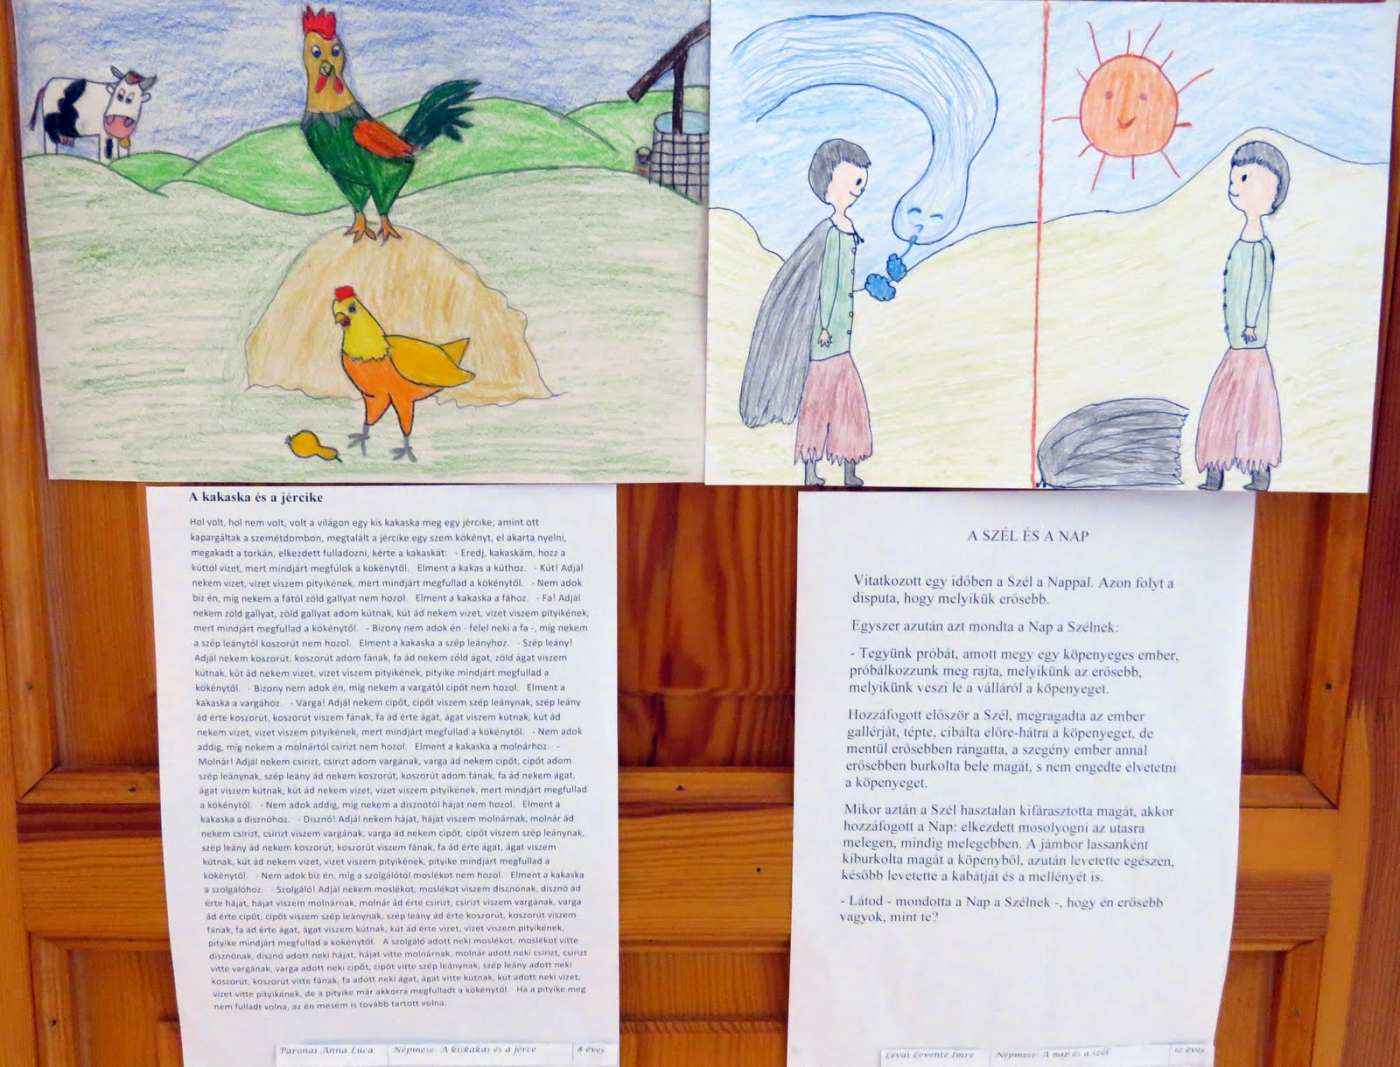 A kakaska és a jércike
Hol volt, hol nem volt, volt a világon egy kis kakaska meg egy jércike; amint ott
kapargáltak a szemétdombon, megtalált a jércike egy szem kökényt, el akarta nyelni,
megakadt a torkán, elkezdett fulladozni, kérte a kakaskát: - Eredj, kakaskám, hozz a
kúttól vizet, mert mindjárt megfúlok a kökénytől. Elment a kakas a kúthoz. - Kút! Adjál
nekem vizet, vizet viszem pityikének, mert mindjárt megfullad a kökénytől. - Nem adok
biz én, míg nekem a fától zöld gallyat nem hozol. Elment a kakaska a fához. - Fa! Adjál
nekem zöld gallyat, zöld gallyat adom kútnak, kút ád nekem vizet, vizet viszem pityikének,
mert mindjárt megfullad a kökénytől. - Bizony nem adok én - felel neki a fa -, míg nekem
a szép leánytól koszorút nem hozol. Elment a kakaska a szép leányhoz. - Szép leány!
Adjál nekem koszorút, koszorút adom fának, fa ád nekem zöld ágat, zöld ágat viszem
kútnak, kút ád nekem vizet, vizet viszem pityikének, pityike mindjárt megfullad a
kökénytől. - Bizony nem adok én, míg nekem a vargától cipőt nem hozol. Elment a
kakaska a vargához. - Varga! Adjál nekem cipőt, cipőt viszem szép leánynak, szép leány
ád érte koszorút, koszorút viszem fának, fa ád érte ágat, ágat viszem kútnak, kút ád
nekem vizet, vizet viszem pityikének, mert mindjárt megfullad a kökénytől. - Nem adok
addig, míg nekem a molnártól csirizt nem hozol. Elment a kakaska a molnárhoz. -
Molnár! Adjál nekem csirizt, csirizt adom vargának, varga ád nekem cipőt, cipőt adom
szép leánynak, szép leány ád nekem koszorút, koszorút adom fának, fa ád nekem ágat,
ágat viszem kútnak, kút ád nekem vizet, vizet viszem pityikének, mert mindjárt megfullad
a kökénytől. - Nem adok addig, míg nekem a disznótól hájat nem hozol. Elment a
kakaska a disznóhoz. - Disznó! Adjál nekem hájat, hájat viszem molnárnak, molnár ád
nekem csirizt, csirizt viszem vargának, varga ád nekem cipőt, cipőt viszem szép leánynak,
szép leány ád nekem koszorút, koszorút viszem fának, fa ád érte ágat, ágat viszem
kútnak, kút ád nekem vizet, vizet viszem pityikének, pityike mindjárt megfullad a
kökénytől. - Nem adok biz én, míg a szolgálótól moslékot nem hozol. Elment a kakaska
a szolgálóhoz. - Szolgáló! Adjál nekem moslékot, moslékot viszem disznónak, disznó ád
érte hájat, hájat viszem molnárnak, molnár ád érte csirizt, csirizt viszem vargának, varga
ád érte cipőt, cipőt viszem szép leánynak, szép leány ád érte koszorút, koszorút viszem
fának, fa ád érte ágat, ágat viszem kútnak, kút ád érte vizet, vizet viszem pityikének,
pityike mindjárt megfullad a kökénytől. A szolgáló adott neki moslékot, moslékot vitte
disznónak, disznó adott neki hájat, hájat vitte molnárnak, molnár adott neki csirizt, csirizt
vitte vargának, varga adott neki cipőt, cipőt vitte szép leánynak, szép leány adott neki
koszorút, koszorút vitte fának, fa adott neki ágat, ágat vitte kútnak, kút adott neki vizet,
vizet vitte pityikének, de a pityike már akkorra megfulladt a kökénytől. Ha a pityike meg
nem fulladt volna, az én mesém is tovább tartott volna.
Paronai Anna Luca Népmese: A kiskakas és a jérce 8 éves
A SZÉL ÉS A NAP
Vitatkozott egy időben a Szél a Nappal. Azon folyt a
disputa, hogy melyikük erősebb.
Egyszer azután azt mondta a Nap a Szélnek:
- Tegyünk próbát, amott megy egy köpenyeges ember,
próbálkozzunk meg rajta, melyikünk az erősebb,
melyikünk veszi le a válláról a köpenyeget.
Hozzáfogott először a Szél, megragadta az ember
gallérját, tépte, cibálta előre-hátra a köpenyeget, de
mentül erősebben rángatta, a szegény ember annál
erősebben burkolta bele magát, s nem engedte elvetetni
a köpenyeget.
Mikor aztán a Szél hasztalan kifárasztotta magát, akkor
hozzáfogott a Nap: elkezdett mosolyogni az utasra
melegen, mindig melegebben. A jámbor lassanként
kiburkolta magát a köpenyből, azután levetette egészen,
később levetette a kabátját és a mellényét is.
- Látod - mondotta a Nap a Szélnek -, hogy én erősebb
vagyok, mint te?
Lévai Levente Imre Népmese: A nap és a szél 12 éves